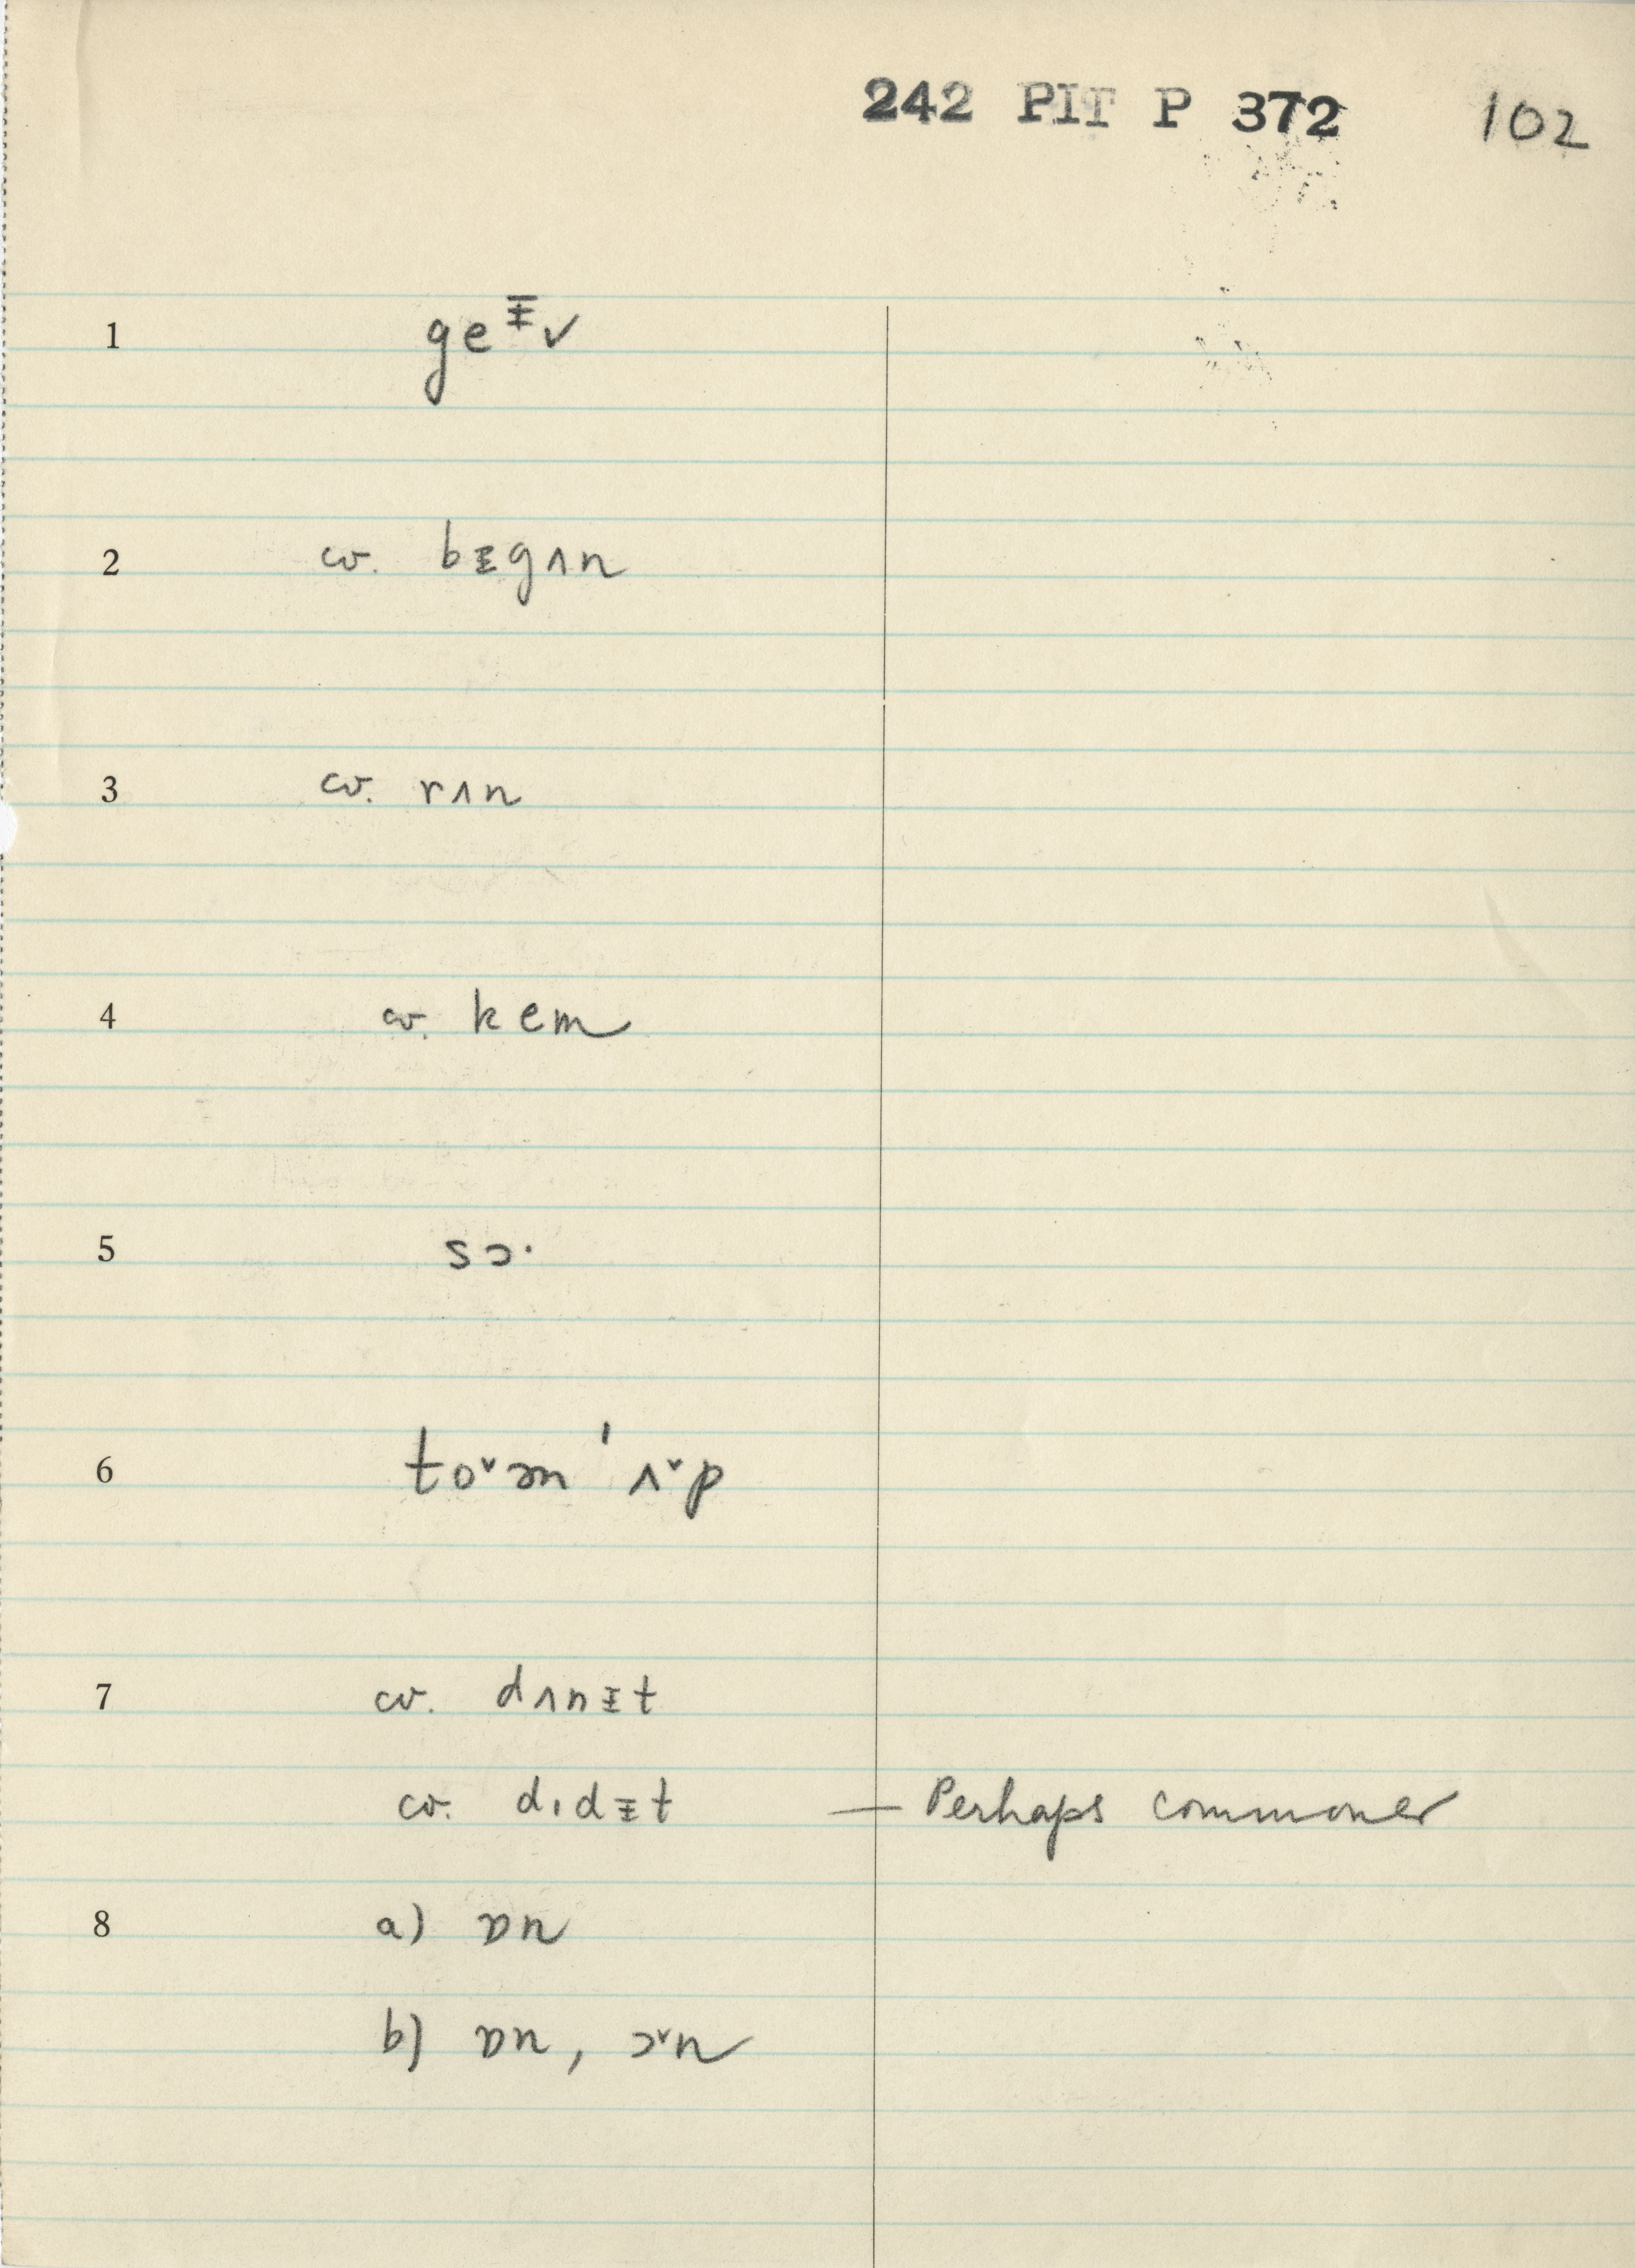 242 PIT P 372 102
1 geᵻv
2 cv. bᵻgʌn
3 cv. rʌn
4 cv. kem
5 sɔ·
6 to˅ɚn ˈʌ˅p
7 cv. dʌnᵻt
cv. dıdᵻt — Perhaps commoner
8 a) ɒn
b) ɒn, ɔ˅n